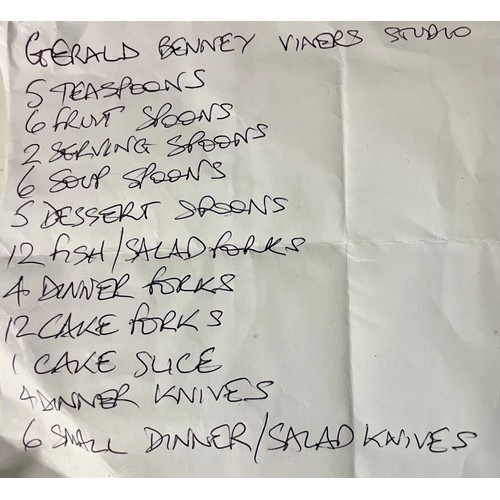 GERALD BENNEY VINERS STUDIO
5 TEASPOONS
6 FRUIT SPOONS
2 SERVING SPOONS
6 SOUP SPOONS
5 DESSERT SPOONS
12 FISH/SALAD FORKS
4 DINNER FORKS
12 CAKE FORKS
1 CAKE SLICE
4 DINNER KNIVES
6 SMALL DINNER/SALAD KNIVES